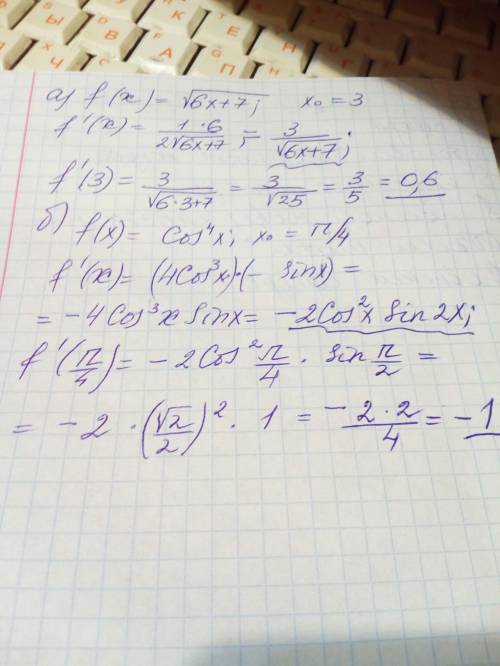 а) f(x) = √6x+7; x₀ = 3
f'(x) = 1·6/2√6x+7 = 3/√6x+7;
f'(3) = 3/√6·3+7 = 3/√25 = 3/5 = 0,6
б) f(x) = Cos⁴x; x₀ = π/4
f'(x) = (4Cos³x)·(- sinx) =
= -4Cos³x sinx = -2Cos²x sin2x;
f'(π/4) = -2Cos²π/4 · sin π/2 =
= -2 · (√2/2)² · 1 = -2·2/4 = -1